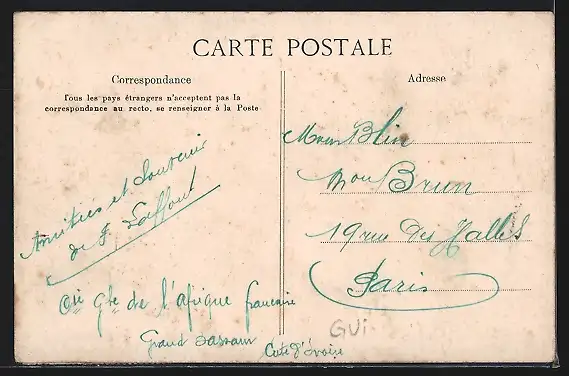 CARTE POSTALE
Correspondance
Tous les pays étrangers n'acceptent pas la
correspondance au recto, se renseigner à la Poste
Amitiés et Souvenir
de F. Laffont
Cie Gle de l'Afrique francaise
Grand Bassam
Côte d'Ivoire
Adresse
Blin
Mon Brun
19 rue des Halles
Paris
GUI